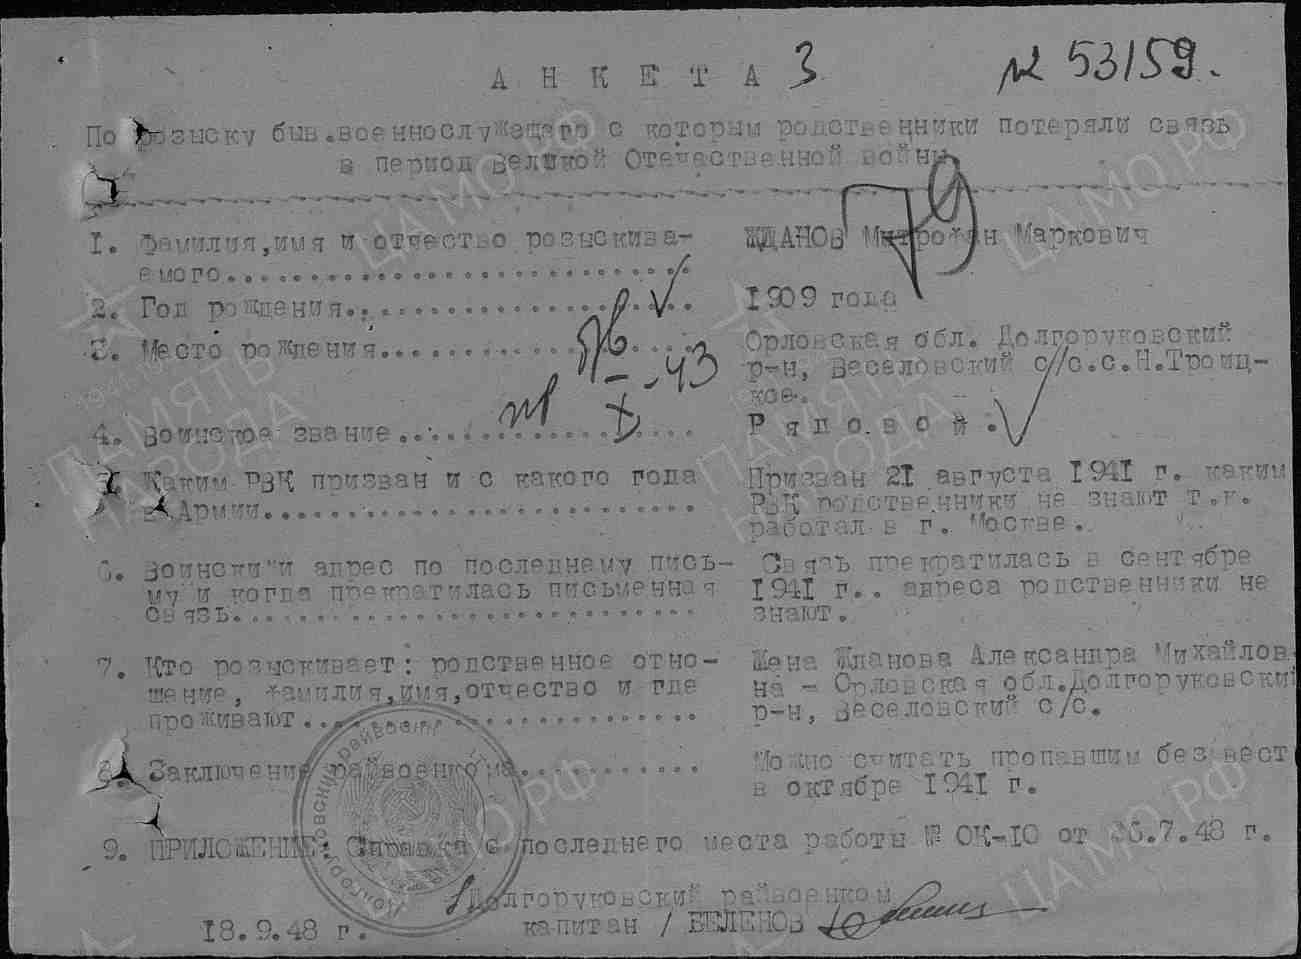 АНКЕТА 3
№ 53159.
По розыску быв.военнослужащего с которым родственники потеряли связь
в период Великой Отечественной войны
1. Фамилия,имя и отчество розыскива-
емого..............................
ЖДАНОВ Митрофан Маркович
2. Год рождения.....................
1909 года
3. Место рождения...................
Орловская обл. Долгоруковский
р-н, Веселовский с/с.с.Н.Троиц-
кое.
4. Воинское звание..................
Рядовой.
Каким РВК призван и с какого года
в Армии............................
Призван 21 августа 1941 г. каким
РВК родственники не знают т.к.
работал в г. Москве.
6. Воинский адрес по последнему пись-
му и когда прекратилась письменная
связь..............................
Связь прекратилась в сентябре
1941 г.. адреса родственники не
знают.
7. Кто розыскивает: родственное отно-
шение, фамилия,имя,отчество и где
проживают..........................
Жена Жданова Александра Михайлов-
на - Орловская обл.Долгоруковский
р-н, Веселовский с/с.
8. Заключение райвоенкома...........
Можно считать пропавшим без вест
в октябре 1941 г.
9. ПРИЛОЖЕНИЕ: Справка с последнего места работы № ОК-10 от 7.48 г.
Долгоруковский райвоенком
капитан / БЕЛЕНОВ
18.9.48 г.
79
43
ЦАМО.РФ
ПАМЯТЬ
НАРОДА